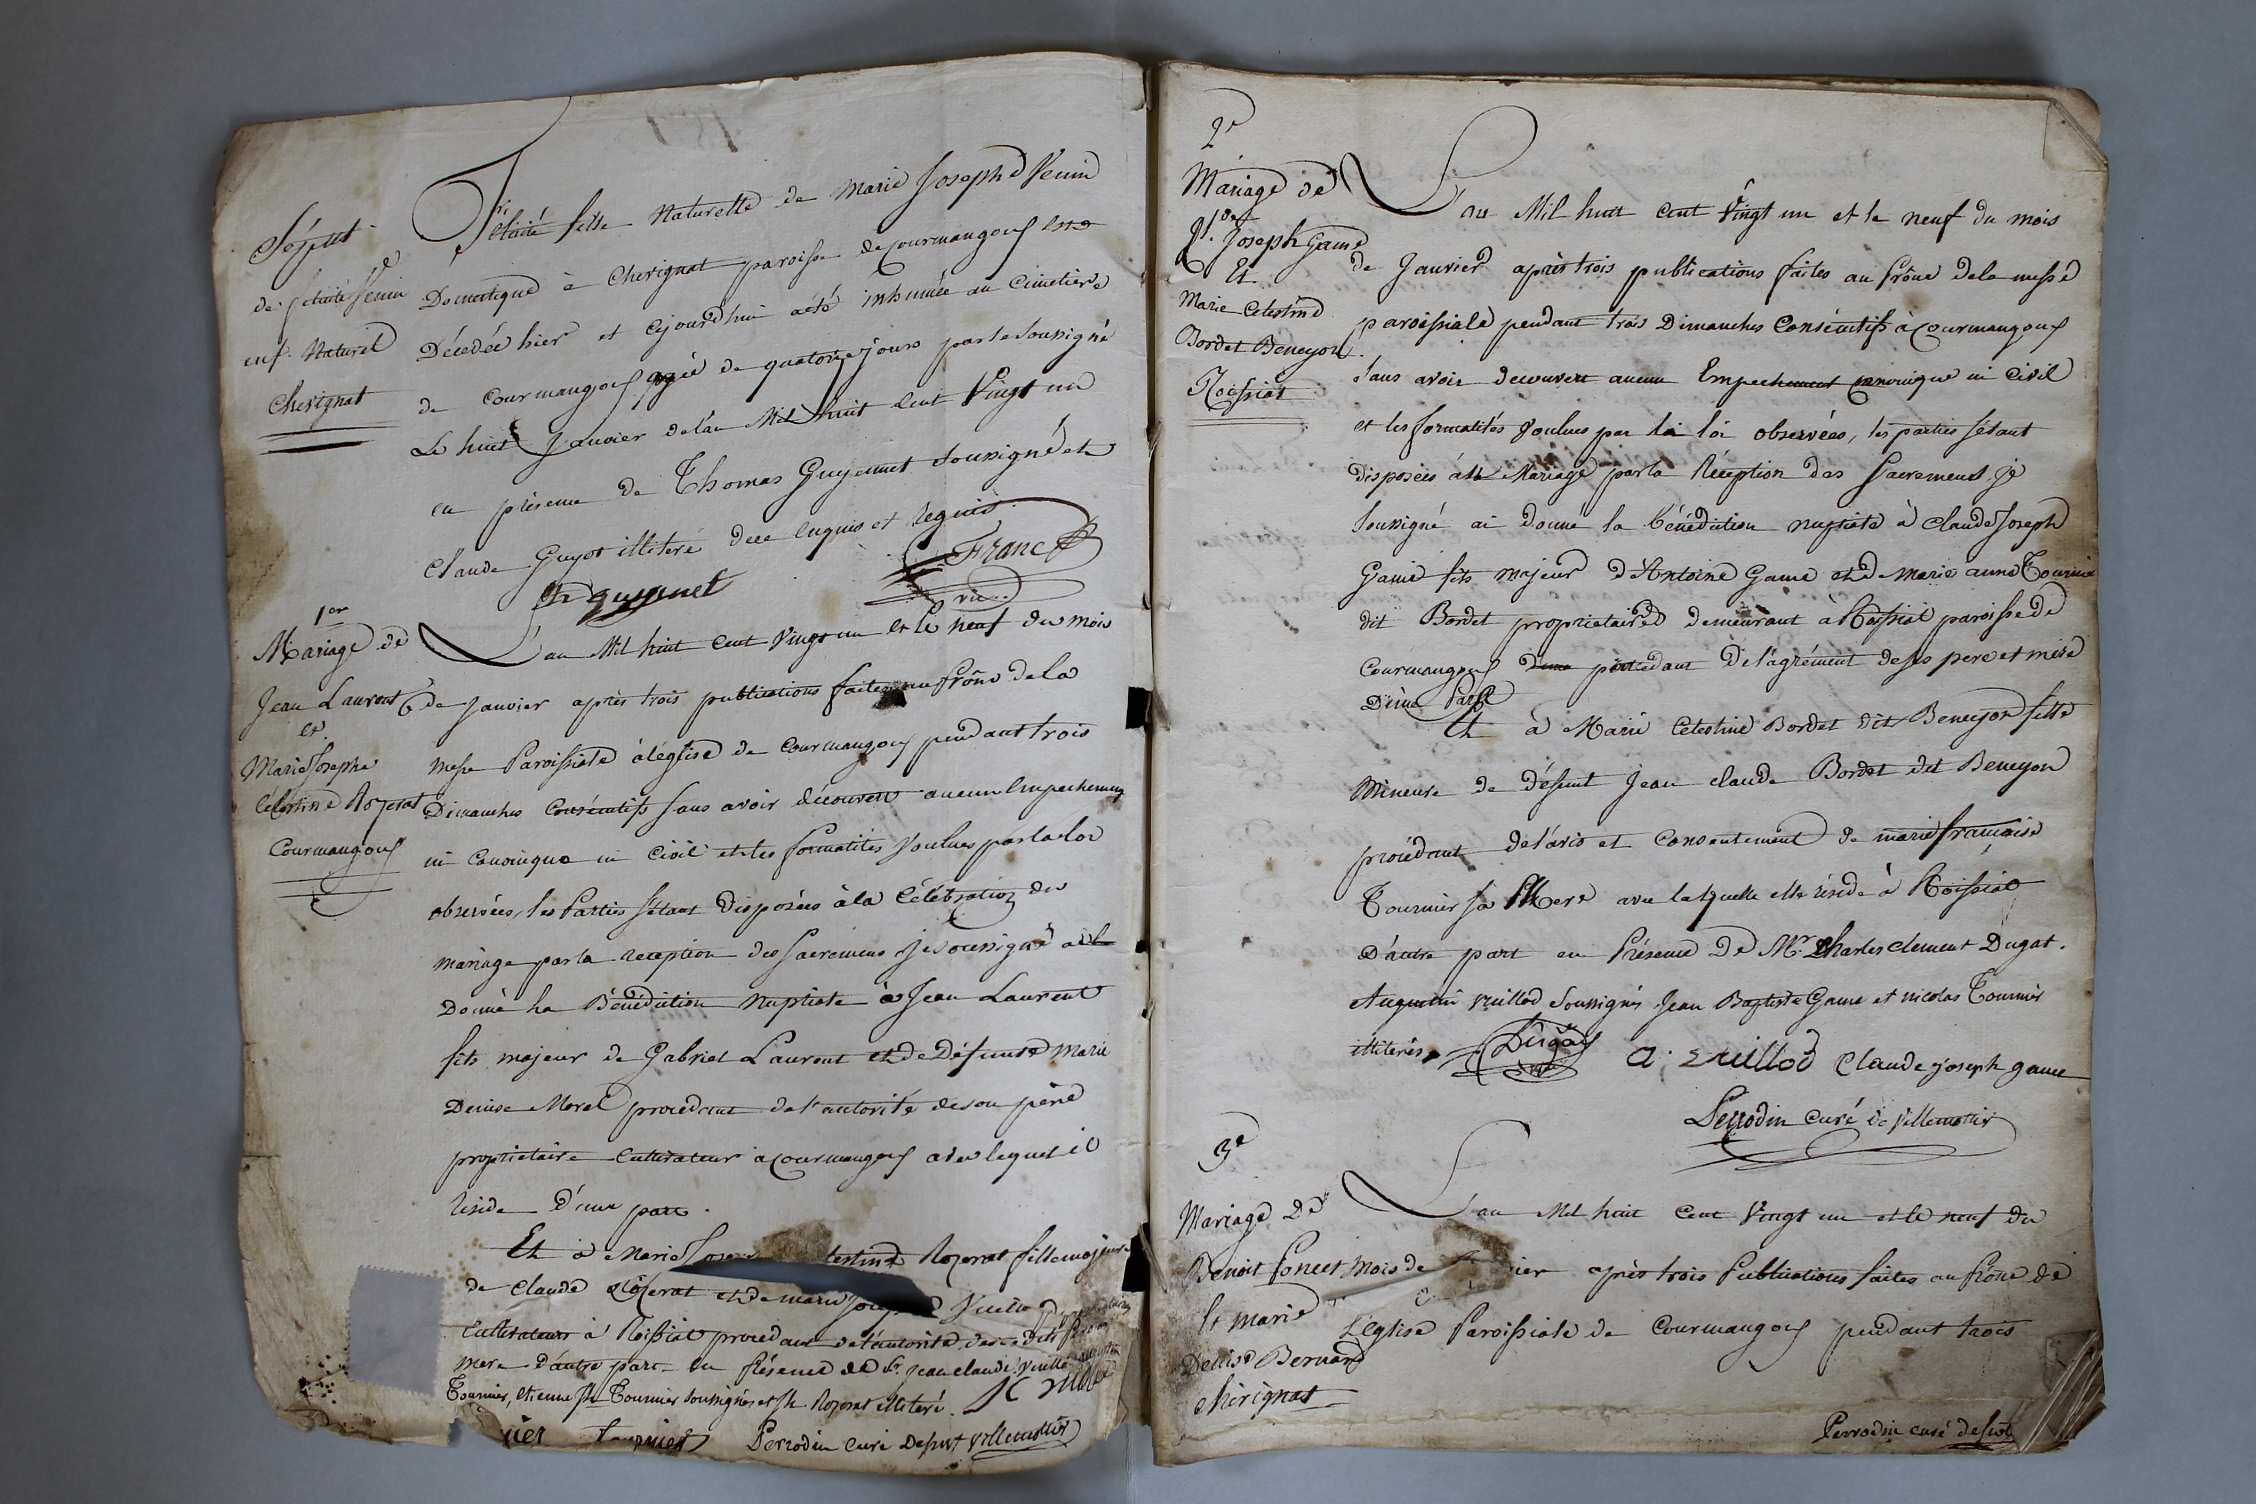 Sépult.
de félicité Venin
enf. Naturel
Cherignat
félicité fille Naturelle de Marie Joseph Venin
Domestique à Cherignat paroisse de Courmangoux est
Décédée hier et cejourd'hui a été inhumée au Cimetière
de Courmangoux agée de quatorze jours par le Soussigné
Le huit Janvier de l'an Mil huit Cent Vingt un
en présence de Thomas Guyennet Soussigné et de
Claude Guyot illiteré de ce enquis et requis.
Th guyennet Franc
vic.
1er
Mariage de
Jean Laurent
et
Marie Josephe
Célestine Rozerat
Courmangoux
L'an Mil huit Cent Vingt un et le neuf du mois
de Janvier après trois publications faites au Prône de la
messe Paroissiale à l'église de Courmangoux pendant trois
Dimanches Consécutifs sans avoir découvert aucun Empechement
ni Canonique ni Civil et les formalités Voulues par la loi
observées, les Parties s'étant Disposées à la Célébration du
mariage par la reception des Sacremens je soussigné ai
Donné la Bénédiction Nuptiale à Jean Laurent
fils majeur de Gabriel Laurent et de Défunte Marie
Denise Morel procédant de l'autorité de son père
propriétaire Cultivateur a Courmangoux avec lequel il
réside D'une part.
Et à Marie Célestine Rozerat fille majeure
de Claude Rozerat et de marie
Cultivateurs à Roissiat procédant de l'autorité de ses dits
mere d'autre part en Présence de Sr. Jean Claude
Tournier, Etienne Tournier Soussignés et Rozerat illiteré.
Tournier Perrodin curé Villemotier
2e
Mariage de
Cl. Joseph Game
Et
Marie Celestine
Bordet Beneyon
Roissiat
L'an Mil huit Cent Vingt un et le neuf du mois
de Janvier après trois publications faites au Prône de la messe
paroissiale pendant trois Dimanches Consécutifs à Courmangoux
sans avoir decouvert aucun Empechement canonique ni Civil
et les formalités Voulues par la loi observées, les parties s'étant
disposées au Mariage par la Réception des Sacremens je
soussigné ai donné la bénédiction nuptiale à Claude Joseph
Game fils majeur d'Antoine Game et de Marie anne Tournier
dit Bordet propriétaire demeurant à Roissiat paroisse de
Courmangoux procédant De l'agrément de ses pere et mère
D'une Part
Et à Marie Celestine Bordet dit Beneyon fille
Mineure de défunt Jean claude Bordet dit Beneyon
procédant de l'avis et consentement de marie françoise
Tournier sa Mere avec laquelle elle réside à Roissiat
D'autre part en Présence de Mr. Charles Clement Dugat.
Augustin Vuillod Soussignés Jean Baptiste Game et nicolas Tournier
illiterés. Dugat a. vuillod Claude joseph game
Perrodin Curé de Villemotier
3e
Mariage De
Benoit Poncet
et marie
Denise Bernard
Chérignat
L'an Mil huit Cent Vingt un et le neuf du
mois de après trois Publications faites au Prône de
L'église Paroissiale de Courmangoux pendant trois
Perrodin curé